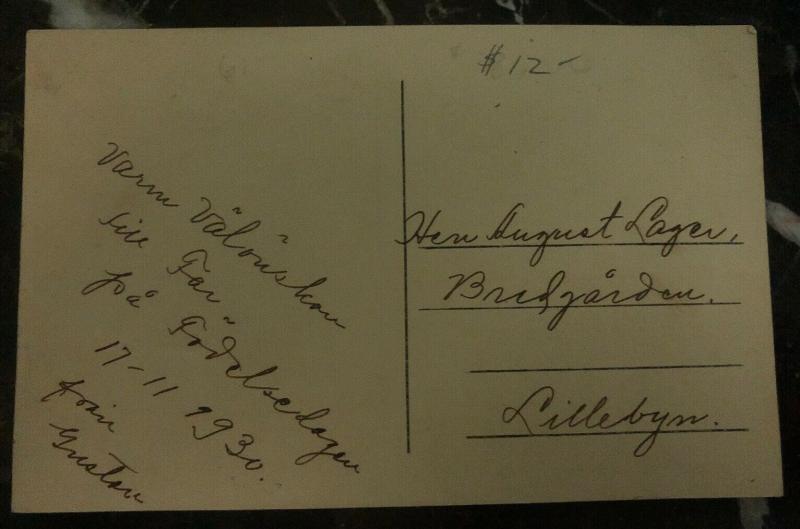 $12-
Varm Välönskan
till Far
på Födelsedagen
17-11 1930.
från
Gustav
Herr August Lager,
Bredgården.
Lillebyn.